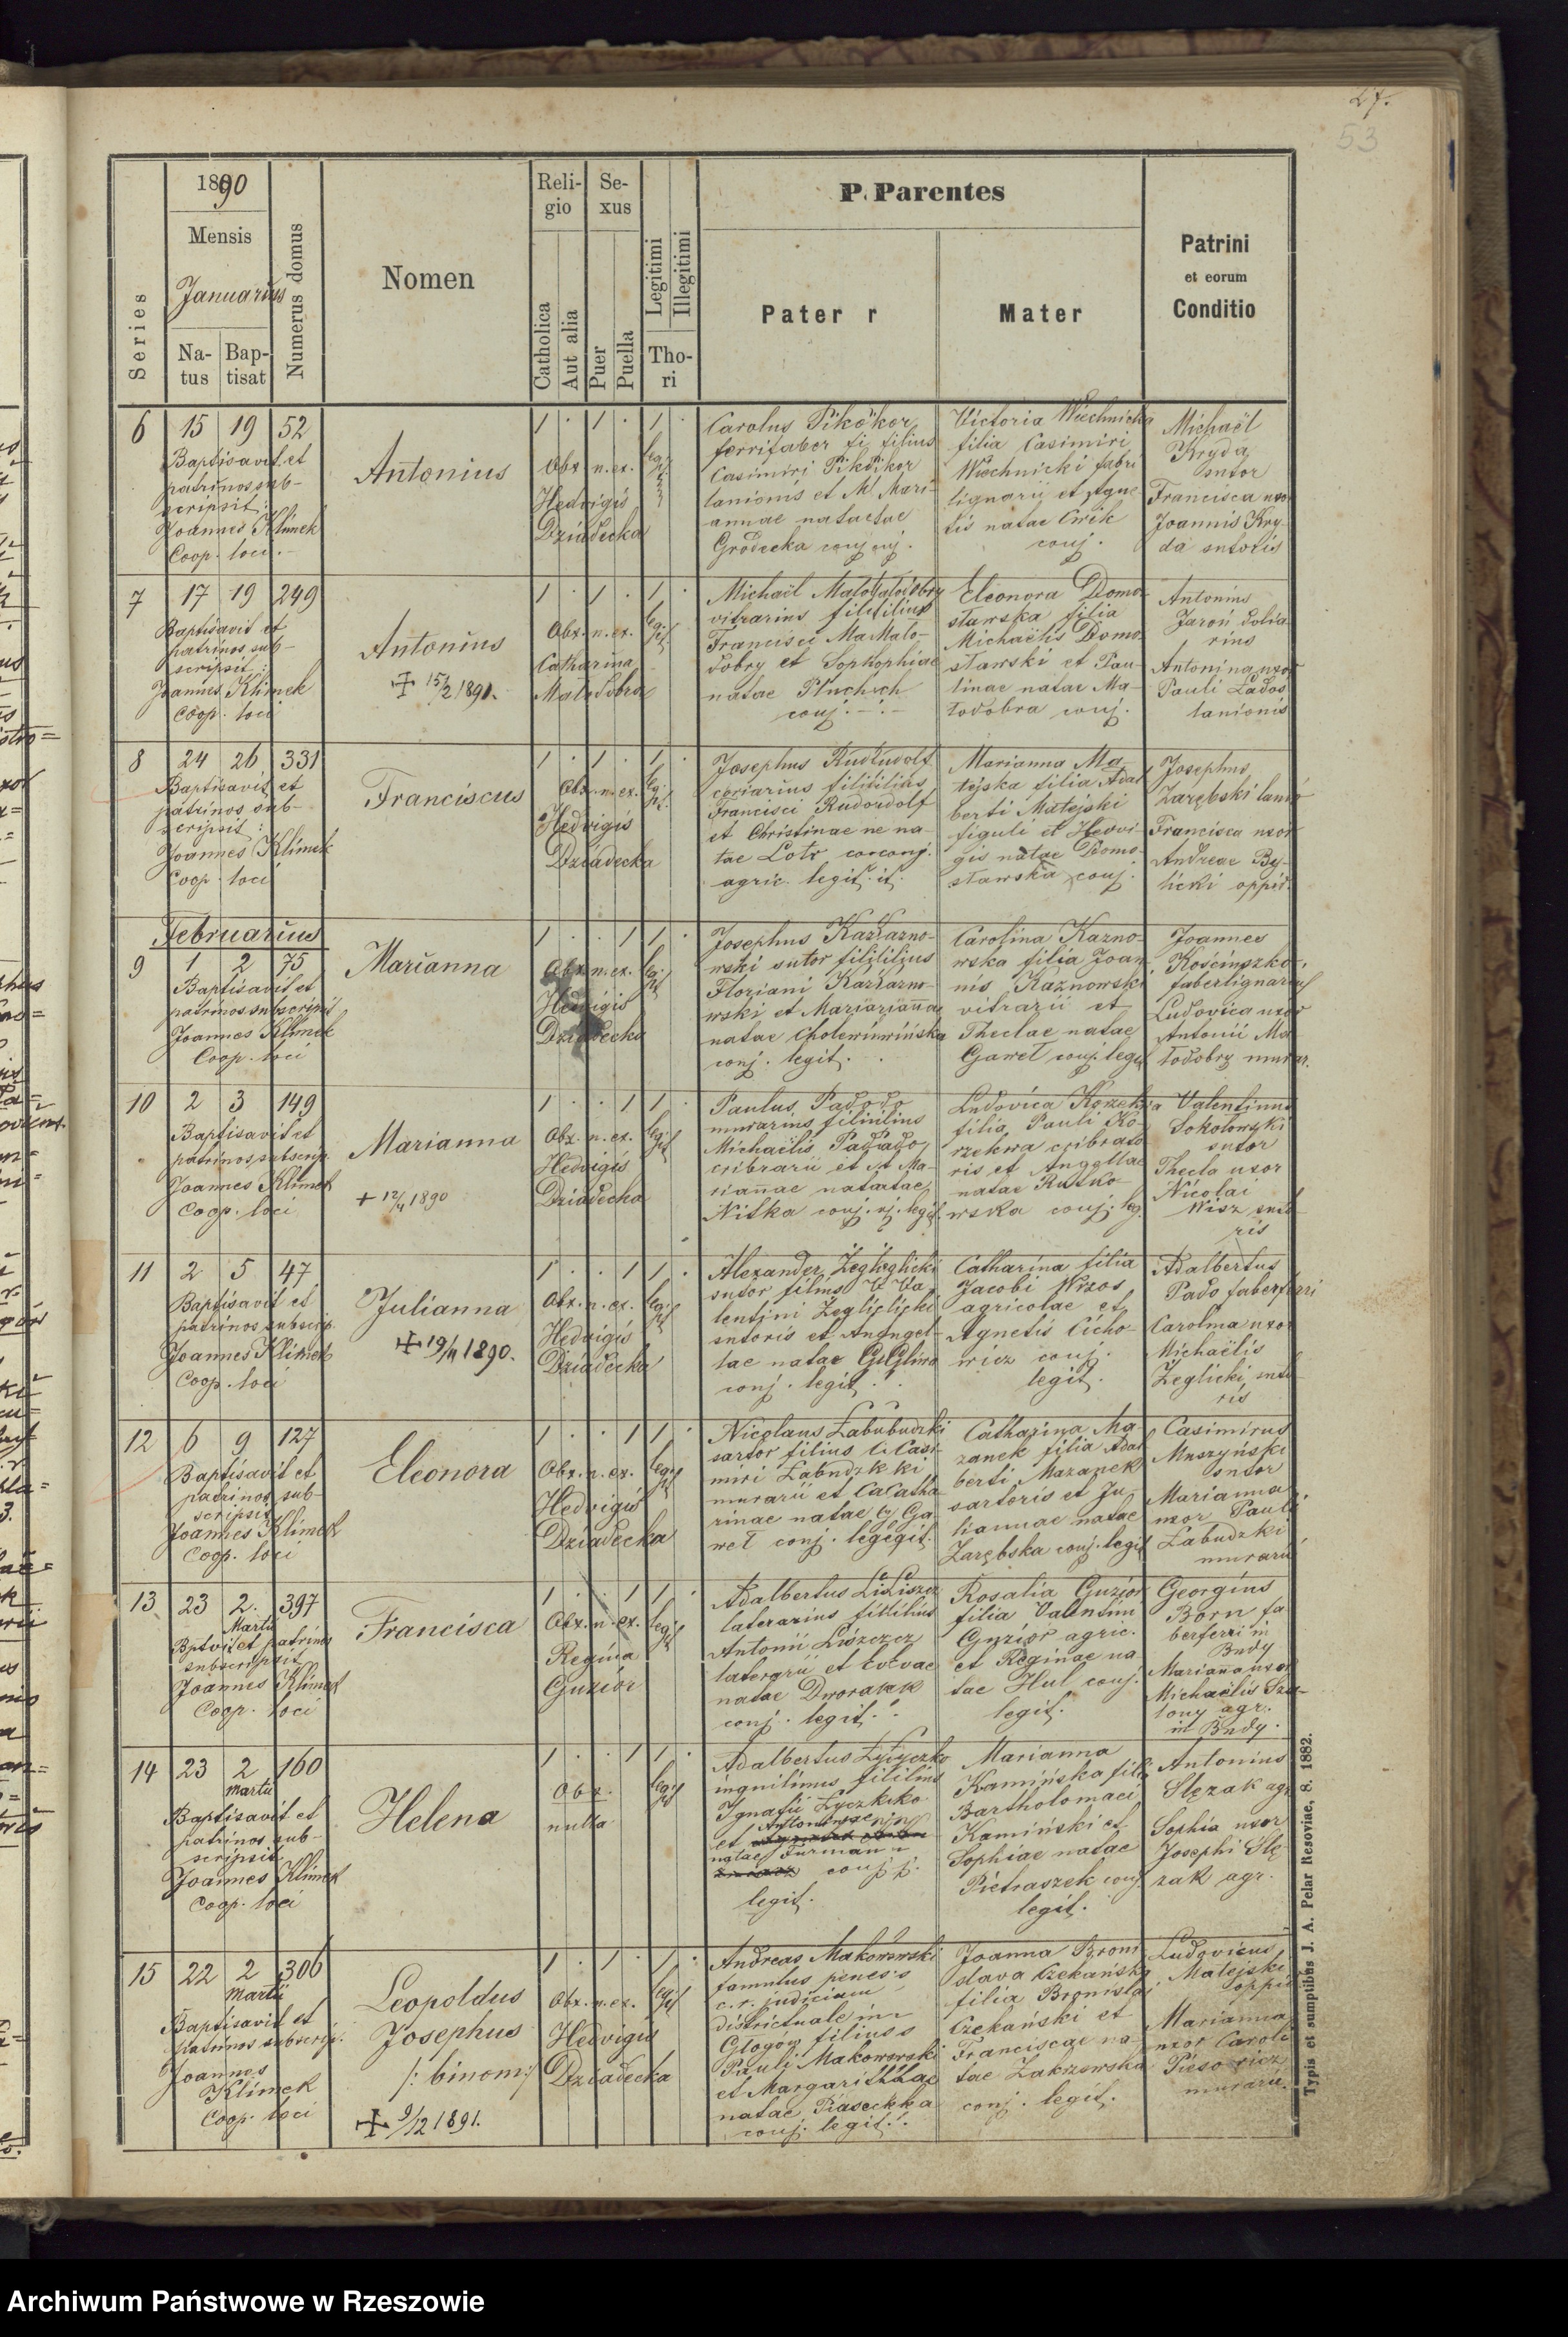 27.
53
1890
Mensis
Januarius
Series
Na-
tus
Bap-
tisat
Numerus domus
Nomen
Reli-
gio
Se-
xus
Catholica
Aut alia
Puer
Puella
Legitimi
Illegitimi
Tho-
ri
P. Parentes
Pater r
Mater
Patrini
et eorum
Conditio
6 15 19 52
Baptisavit et
patrinos sub-
scripsit:
Joannes Klimek
Coop. loci.
Antonius
1 . 1 . 1 .
Obx. n. ex.
Hedvigis
Dziadecka
Carolus
ferrifaber filius
Casimiri
lanionis et Mari-
annae natae
Grodecka conj.
Victoria Wiechnicka
filia Casimiri
Wiechnicki fabri
lignarii et Agne-
tis natae Cwik
conj.
Michaël
Kryda
sutor
Francisca uxor
Joannis Kry-
da sutoris
7 17 19 249
Baptisavit et
patrinos sub-
scripsit:
Joannes Klimek
Coop. loci
Antonius
+ 15/2 1891.
1 . 1 . 1 .
Obx. n. ex.
Catharina
Małodobra
Michaël Małodobry
vitrarius filius
Francisci Mało-
dobry et Sophiae
natae
conj.
Eleonora Domo-
sławska filia
Michaëlis Domo-
sławski et Pau-
linae natae Ma-
łodobra conj.
Antonius
Jaroń dolia-
rius
Antonina uxor
Pauli Lados
lanionis
8 24 26 331
Baptisavit et
patrinos sub-
scripsit:
Joannes Klimek
Coop. loci
Franciscus
1 . 1 . 1 .
Obx. n. ex.
Hedvigis
Dziadecka
Josephus Rudolf
coriarius filius
Francisci Rudolf
et Christinae na-
tae Lotr conj.
agric. legit.
Marianna Ma-
tejska filia Adal
berti Matejski
figuli et Hedvi-
gis natae Domo-
sławska conj.
Josephus
Zarębski lanio
Francisca uxor
Andreae By-
licki oppid.
Februarius
9 1 2 75
Baptisavit et
patrinos subscripsit
Joannes Klimek
Coop. loci
Marianna
1 . . 1 1 .
Obx. n. ex.
Hedvigis
Dziadecka
Josephus Kazno-
wski sutor filius
Floriani Kazno-
wski et Mariannae
natae Cholewińska
conj. legit.
Carolina Kazno-
wska filia Joan-
nis Kaznowski
vitrarii et
Theclae natae
Gaweł conj. legit
Joannes
Kościuszko
faber lignarius
Ludovica uxor
Antonii Ma-
łodobry murar.
10 2 3 149
Baptisavit et
patrinos subscrip.
Joannes Klimek
Coop. loci
Marianna
+ 12/4 1890
1 . . 1 1 .
Obx. n. ex. legit
Hedvigis
Dziadecka
Paulus Pado
murarius filius
Michaëlis Pado
cribrarii et Ma-
riannae natae
Nitka conj. legit.
Ludovica Korzekwa
filia Pauli Ko-
rzekwa cribrato
ris et Angellae
natae Rutko-
wska conj. leg.
Valentinus
Sokołowski
sutor
Thecla uxor
Nicolai
Wisz suto-
ris
11 2 5 47
Baptisavit et
patrinos subscrip.
Joannes Klimek
Coop. loci
Julianna
+ 19/4 1890.
1 . . 1 1 .
Obx. n. ex. legit
Hedvigis
Dziadecka
Alexander Żeglicki
sutor filius Va-
lentini Żeglicki
sutoris et Angel-
lae natae
conj. legit.
Catharina filia
Jacobi Wrzos
agricolae et
Agnetis Cicho-
wicz conj.
legit.
Adalbertus
Pado faber ferri
Carolina uxor
Michaëlis
Żeglicki suto-
ris
12 6 9 127
Baptisavit et
patrinos sub-
scripsit
Joannes Klimek
Coop. loci
Eleonora
1 . . 1 1 .
Obx. n. ex. legit
Hedvigis
Dziadecka
Nicolaus Łabudzki
sartor filius Casi-
miri Łabudzki
murarii et Catha-
rinae natae Ga-
weł conj. legit.
Catharina Ma-
zanek filia Adal
berti Mazanek
sartoris et Ju-
liannae natae
Zarębska conj. legit
Casimirus
Muszyński
sutor
Marianna
uxor Pauli
Łabudzki
murarii
13 23 2. 397
Martii
Bptvit et patrinos
subscripsit
Joannes Klimek
Coop. loci
Francisca
1 . . 1 1 .
Obx. n. ex. legit
Regina
Guzior
Adalbertus Liszcz
laterarius filius
Antonii Liszcz
laterarii et Evae
natae Dworak
conj. legit.
Rosalia Guzior
filia Valentini
Guzior agric.
et Reginae na
tae Hul conj.
legit.
Georgius
Born fa
ber ferri in
Budy
Marianna uxor
Michaëlis Sza-
lony agr.
in Budy.
14 23 2 160
Martii
Baptisavit et
patrinos sub-
scripsit
Joannes Klimek
Coop. loci
Helena
1 . . 1 1 .
Obx.
nulla
legit
Adalbertus Łyczko
inquilinus filius
Ignatii Łyczko
et Antoninae
natae Furman
conj.
legit.
Marianna
Kamińska filia
Bartholomaei
Kamiński et
Sophiae natae
Pietraszek conj.
legit.
Antonius
Ślęzak agr
Sophia uxor
Josephi Ślę-
zak agr.
15 22 2 306
Martii
Baptisavit et
patrinos subscrip.
Joannes
Klimek
Coop. loci
Leopoldus
Josephus
/: binom :/
+ 9/12 1891.
1 . 1 . 1 .
Obx. n. ex. legit
Hedvigis
Dziadecka
Andreas Makowski
famulus penes
c. r. judicium
districtuale in
Głogów filius
Pauli Makowski
et Margarithae
natae Piasecka
conj. legit.
Joanna Broni
slava Czekańska
filia Bronislai
Czekański et
Franciscae na-
tae Zakrzewska
conj. legit.
Ludovicus
Matejski
oppid
Marianna
uxor Caroli
murarii.
Typis et sumptibus J. A. Pelar Resoviae, 8. 1882.
Archiwum Państwowe w Rzeszowie